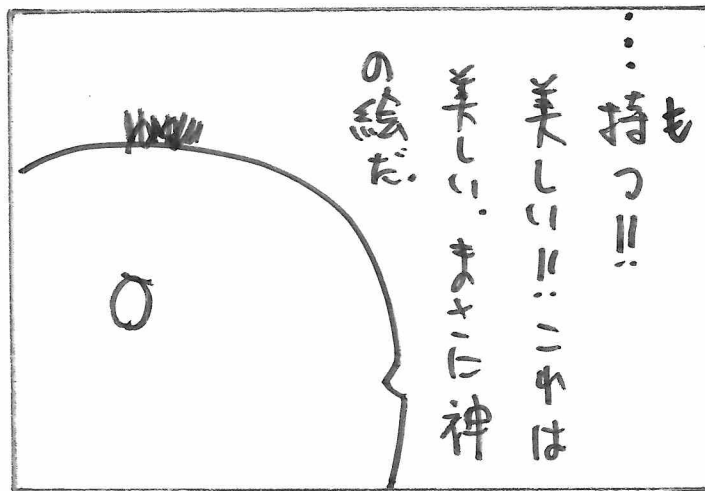 …持つ!!
も
美しい!!これは
美しい.まさに神
の絵だ.